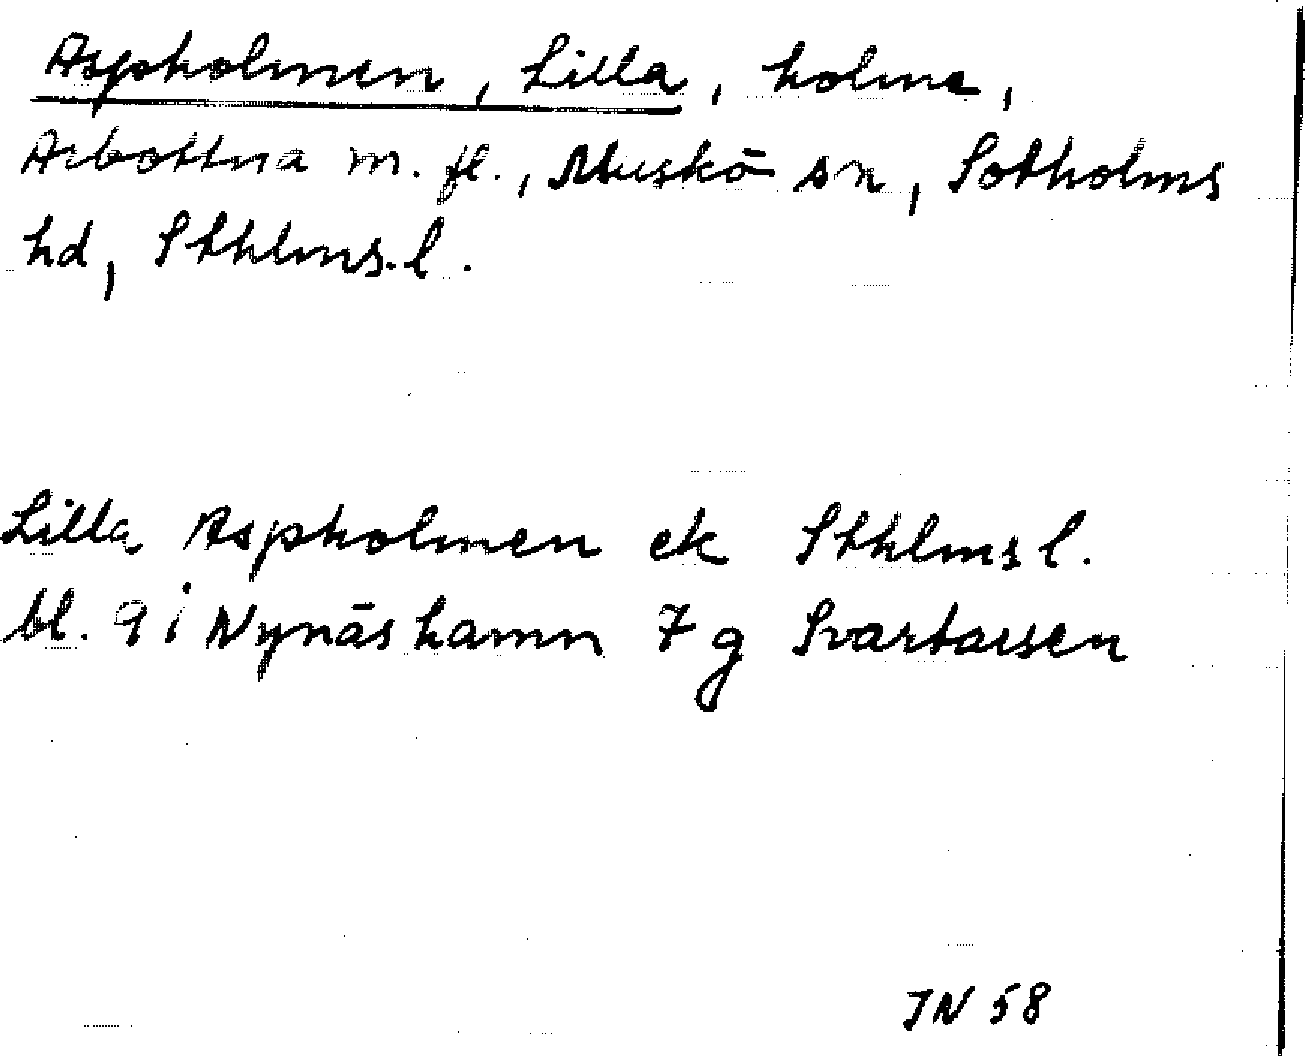 Aspholmen, Lilla, holme,
Arbottna m. fl., Muskö sn, Sotholms
hd, Sthlms. l.
Lilla Aspholmen ek Sthlms l.
bl. 9 i Nynäshamn 7 g Svartarsen
JN 58